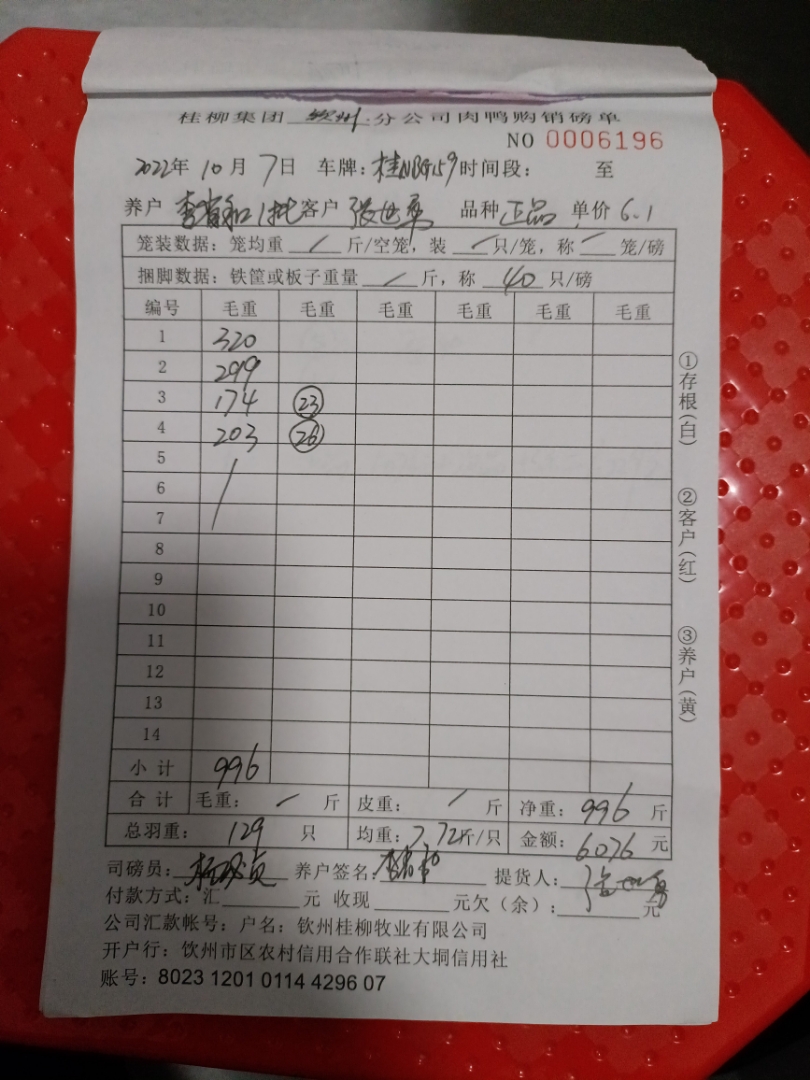 桂柳集团 钦州 分公司肉鸭购销磅单
NO 0006196
2022年 10月 7日 车牌：桂NBG159 时间段： 至
养户 李省和 1批 客户 张世勇 品种 正品 单价 6.1
笼装数据：笼均重 / 斤/空笼，装 / 只/笼，称 / 笼/磅
捆脚数据：铁筐或板子重量 / 斤，称 40 只/磅
编号 毛重 毛重 毛重 毛重 毛重 毛重
1 320
2 299
3 174 23
4 203 26
5
6
7
8
9
10
11
12
13
14
小计 996
合计 毛重： / 斤 皮重： / 斤 净重：996 斤
总羽重： 129 只 均重：7.72斤/只 金额：6076 元
司磅员： 养户签名：李省和 提货人：张世勇
付款方式：汇 元 收现 元欠（余）： 元
公司汇款帐号：户名：钦州桂柳牧业有限公司
开户行：钦州市区农村信用合作联社大垌信用社
账号：8023 1201 0114 4296 07
①存根(白)
②客户(红)
③养户(黄)